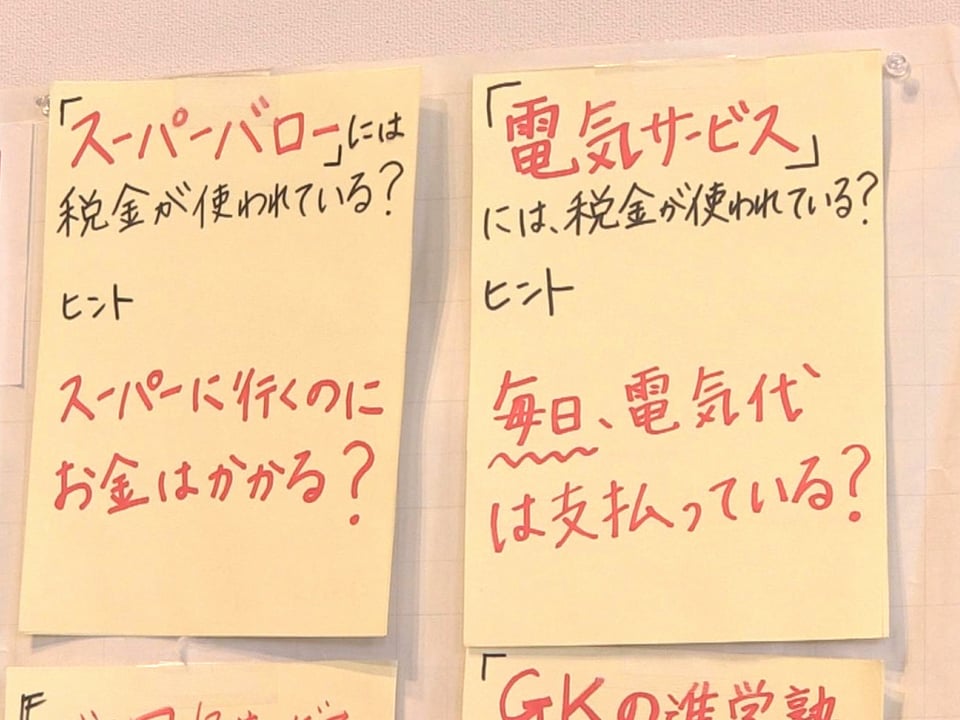 「スーパーバロー」には
税金が使われている?
ヒント
スーパーに行くのに
お金はかかる?
「電気サービス」
には、税金が使われている?
ヒント
毎日、電気代
は支払っている?
「GKの進学塾